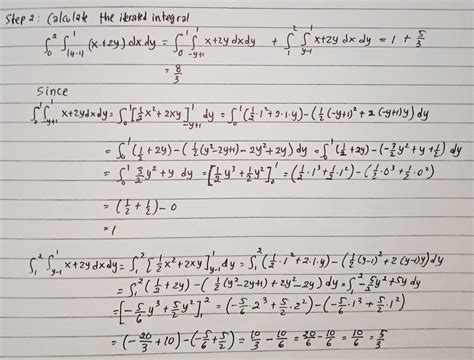 Step 2: Calculate the iterated integral
∫₀² ∫_{|y-1|}^1 (x+2y) dx dy = ∫₀¹ ∫_{-y+1}^1 x+2y dx dy + ∫₁² ∫_{y-1}^1 x+2y dx dy = 1 + 5/3
= 8/3
Since
∫₀¹ ∫_{-y+1}^1 x+2y dx dy = ∫₀¹ [½x² + 2xy]_{-y+1}^1 dy = ∫₀¹ (½·1² + 2·1·y) - (½(-y+1)² + 2(-y+1)y) dy
= ∫₀¹ (½ + 2y) - (½(y²-2y+1) - 2y² + 2y) dy = ∫₀¹ (½ + 2y) - (-3/2 y² + y + ½) dy
= ∫₀¹ 3/2 y² + y dy = [½y³ + ½y²]₀¹ = (½·1³ + ½·1²) - (½·0³ + ½·0²)
= (½ + ½) - 0
= 1
∫₁² ∫_{y-1}^1 x+2y dx dy = ∫₁² [½x² + 2xy]_{y-1}^1 dy = ∫₁² (½·1² + 2·1·y) - (½(y-1)² + 2(y-1)y) dy
= ∫₁² (½ + 2y) - (½(y²-2y+1) + 2y² - 2y) dy = ∫₁² -5/2 y² + 5y dy
= [-5/6 y³ + 5/2 y²]₁² = (-5/6·2³ + 5/2·2²) - (-5/6·1³ + 5/2·1²)
= (-20/3 + 10) - (-5/6 + 5/2) = 10/3 - 10/6 = 20/6 - 10/6 = 10/6 = 5/3